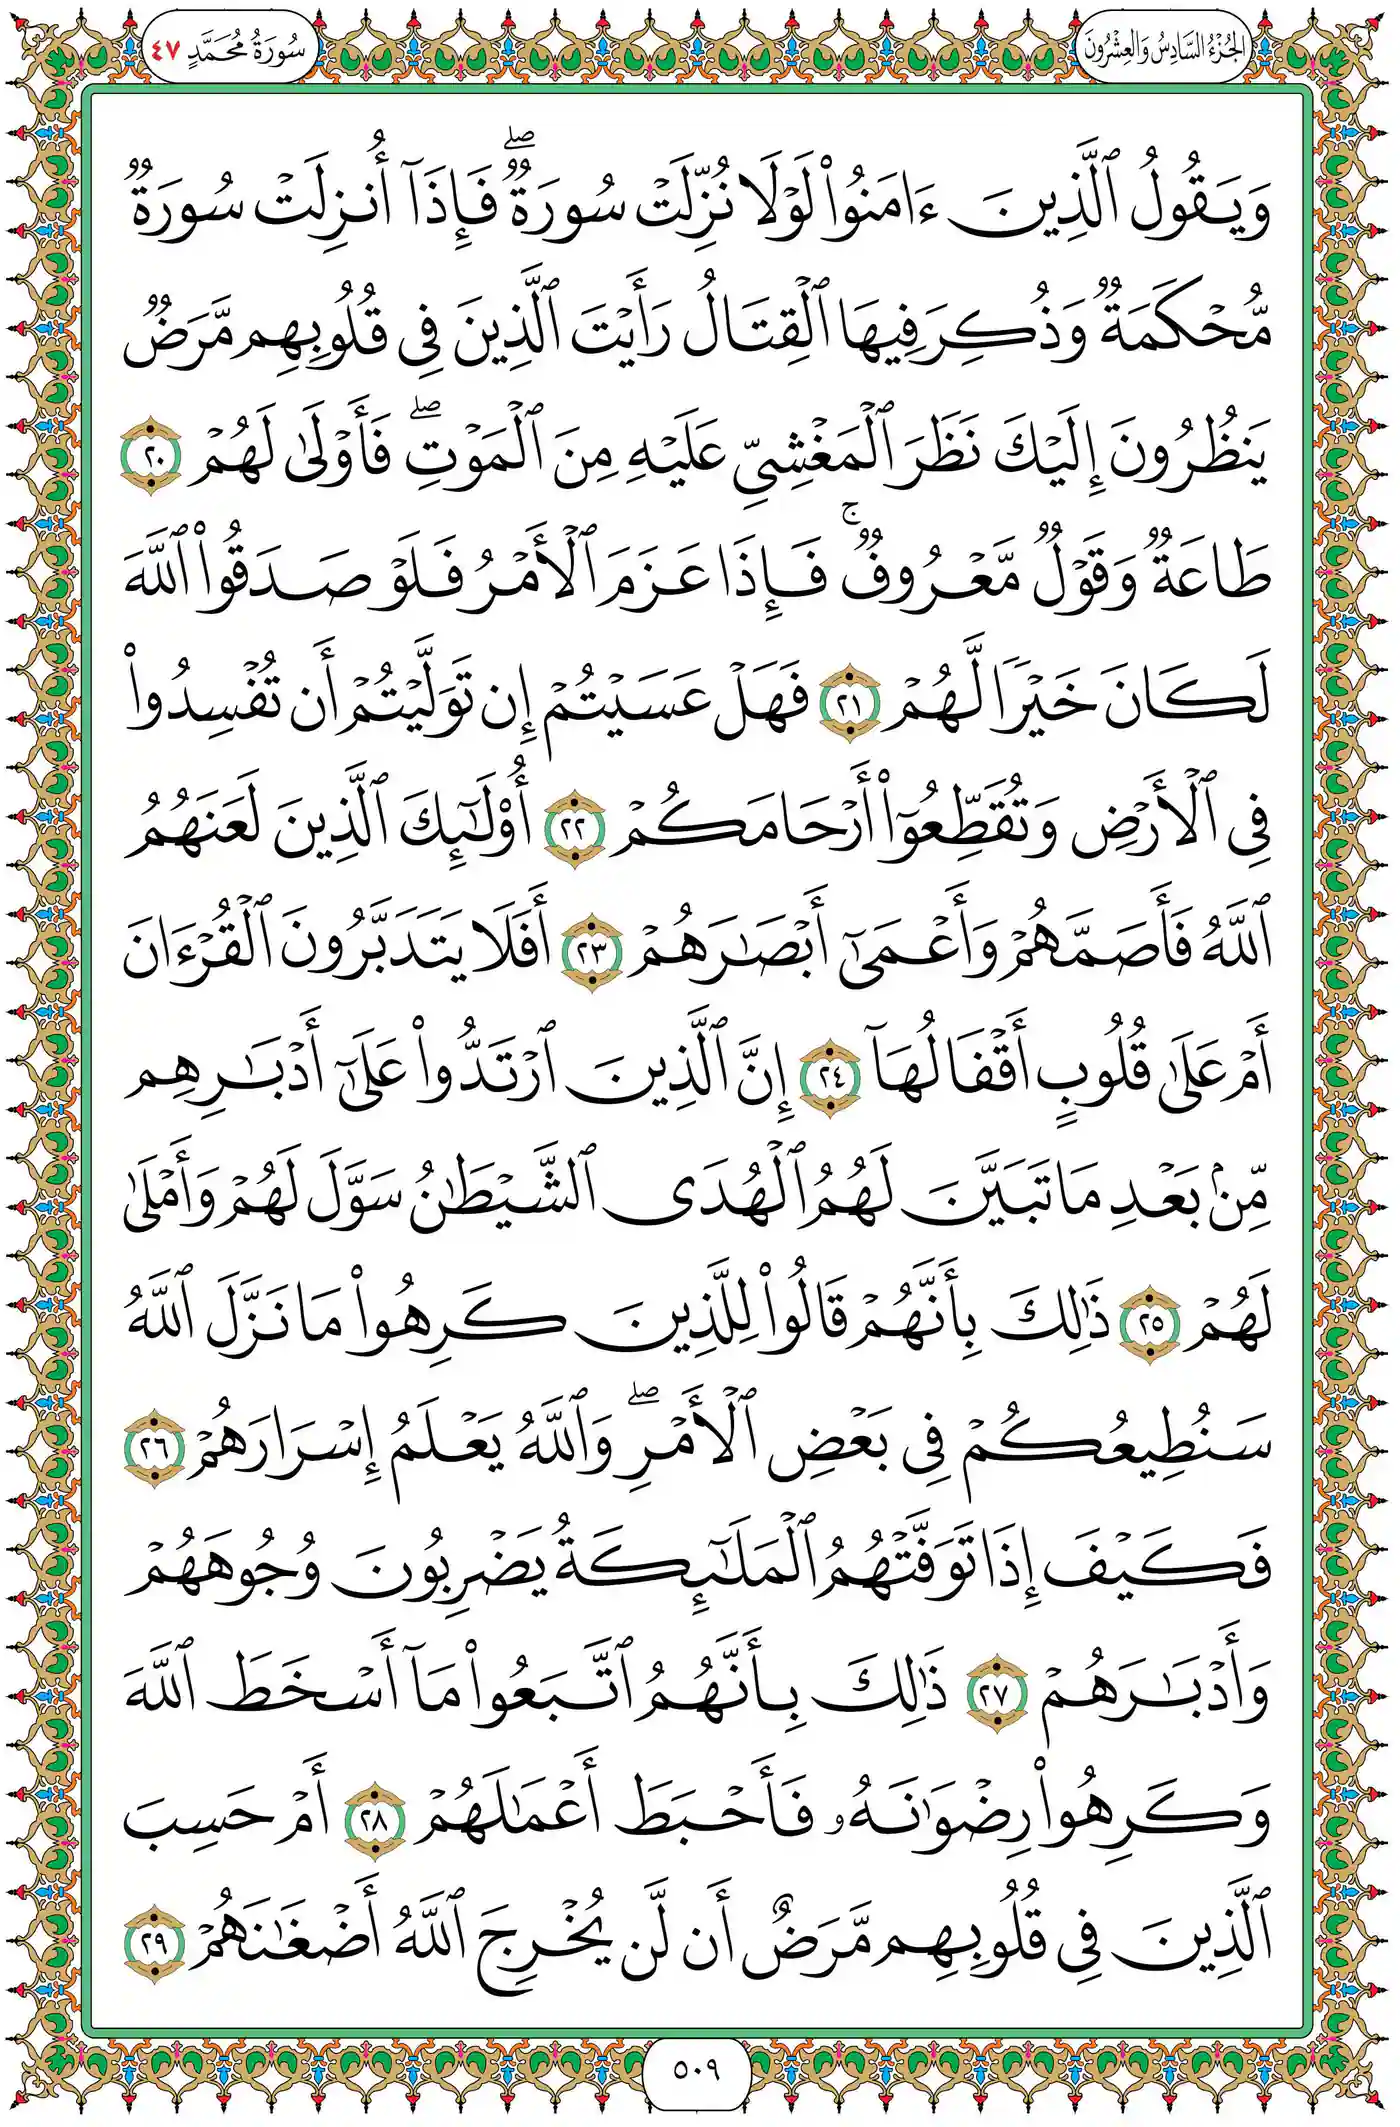 الجُزْءُ السَّادِسُ وَالعِشْرُونَ
سُورَةُ مُحَمَّدٍ ٤٧
وَيَقُولُ ٱلَّذِينَ ءَامَنُوا۟ لَوْلَا نُزِّلَتْ سُورَةٌۖ فَإِذَآ أُنزِلَتْ سُورَةٌ
مُّحْكَمَةٌ وَذُكِرَ فِيهَا ٱلْقِتَالُ رَأَيْتَ ٱلَّذِينَ فِى قُلُوبِهِم مَّرَضٌ
يَنظُرُونَ إِلَيْكَ نَظَرَ ٱلْمَغْشِىِّ عَلَيْهِ مِنَ ٱلْمَوْتِۖ فَأَوْلَىٰ لَهُمْ ٢٠
طَاعَةٌ وَقَوْلٌ مَّعْرُوفٌۚ فَإِذَا عَزَمَ ٱلْأَمْرُ فَلَوْ صَدَقُوا۟ ٱللَّهَ
لَكَانَ خَيْرًا لَّهُمْ ٢١ فَهَلْ عَسَيْتُمْ إِن تَوَلَّيْتُمْ أَن تُفْسِدُوا۟
فِى ٱلْأَرْضِ وَتُقَطِّعُوٓا۟ أَرْحَامَكُمْ ٢٢ أُو۟لَـٰٓئِكَ ٱلَّذِينَ لَعَنَهُمُ
ٱللَّهُ فَأَصَمَّهُمْ وَأَعْمَىٰٓ أَبْصَـٰرَهُمْ ٢٣ أَفَلَا يَتَدَبَّرُونَ ٱلْقُرْءَانَ
أَمْ عَلَىٰ قُلُوبٍ أَقْفَالُهَآ ٢٤ إِنَّ ٱلَّذِينَ ٱرْتَدُّوا۟ عَلَىٰٓ أَدْبَـٰرِهِم
مِّنۢ بَعْدِ مَا تَبَيَّنَ لَهُمُ ٱلْهُدَى ٱلشَّيْطَـٰنُ سَوَّلَ لَهُمْ وَأَمْلَىٰ
لَهُمْ ٢٥ ذَٰلِكَ بِأَنَّهُمْ قَالُوا۟ لِلَّذِينَ كَرِهُوا۟ مَا نَزَّلَ ٱللَّهُ
سَنُطِيعُكُمْ فِى بَعْضِ ٱلْأَمْرِۖ وَٱللَّهُ يَعْلَمُ إِسْرَارَهُمْ ٢٦
فَكَيْفَ إِذَا تَوَفَّتْهُمُ ٱلْمَلَـٰٓئِكَةُ يَضْرِبُونَ وُجُوهَهُمْ
وَأَدْبَـٰرَهُمْ ٢٧ ذَٰلِكَ بِأَنَّهُمُ ٱتَّبَعُوا۟ مَآ أَسْخَطَ ٱللَّهَ
وَكَرِهُوا۟ رِضْوَٰنَهُۥ فَأَحْبَطَ أَعْمَـٰلَهُمْ ٢٨ أَمْ حَسِبَ
ٱلَّذِينَ فِى قُلُوبِهِم مَّرَضٌ أَن لَّن يُخْرِجَ ٱللَّهُ أَضْغَـٰنَهُمْ ٢٩
٥٠٩